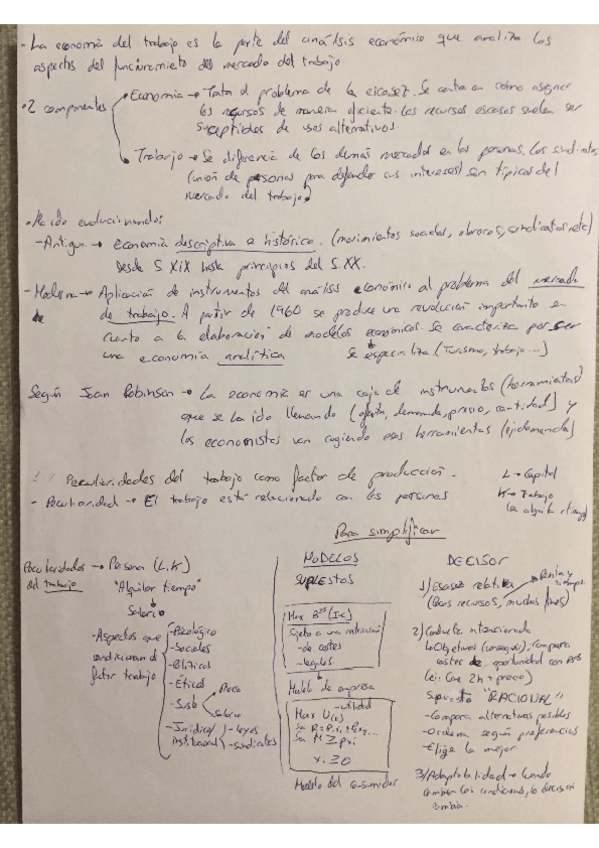 - La economía del trabajo es la parte del análisis económico que analiza los
aspectos del funcionamiento del mercado del trabajo
• 2 componentes
Economía → Trata el problema de la escasez. Se centra en cómo asignar
los recursos de manera eficiente. Los recursos escasos suelen ser
susceptibles de usos alternativos.
Trabajo → Se diferencia de los demás mercados en las personas. Los sindicatos
(unión de personas para defender sus intereses) son típicos del
mercado del trabajo
• Ha ido evolucionando:
- Antigua → Economía descriptiva e histórica. (movimientos sociales, obreros, sindicatos etc)
Desde S. XIX hasta principios del S. XX.
- Moderna → Aplicación de instrumentos del análisis económico al problema del mercado
de trabajo. A partir de 1960 se produce una revolución importante en
cuanto a la elaboración de modelos económicos. Se caracteriza por ser
una economía analítica
Se especializa (Turismo, trabajo...)
Según Joan Robinson → La economía es una caja de instrumentos (herramientas)
que se ha ido llenando (oferta, demanda, precio, cantidad) y
los economistas van cogiendo esas herramientas (ej: demanda)
Peculiaridades del trabajo como factor de producción.
- Peculiaridad → El trabajo está relacionado con las personas
L → Capital
K → Trabajo
Para simplificar
Peculiaridades → Persona (L, K)
del trabajo
"Alquilar tiempo"
Salario
- Aspectos que
condicionan el
factor trabajo
- Psicológico
- Sociales
- Políticos
- Éticos
Poco
Salario
- Jurídico/
institucional
- leyes
- sindicatos
MODELOS
SUPUESTOS
Max Bº (I-C)
Sujeto a una restricción
- de costes
- legales
Modelo de empresa
- utilidad
Max U(x)
Modelo del consumidor
DECISOR
1) Escasez relativa
Renta y
tiempo
(Pocos recursos, muchos fines)
2) Conducta intencionada
Supuesto "RACIONAL"
- Compara alternativas posibles
- Ordena según preferencias
- Elige la mejor
3) Adaptabilidad → Cuando
cambian las condiciones, la decisión
cambia.